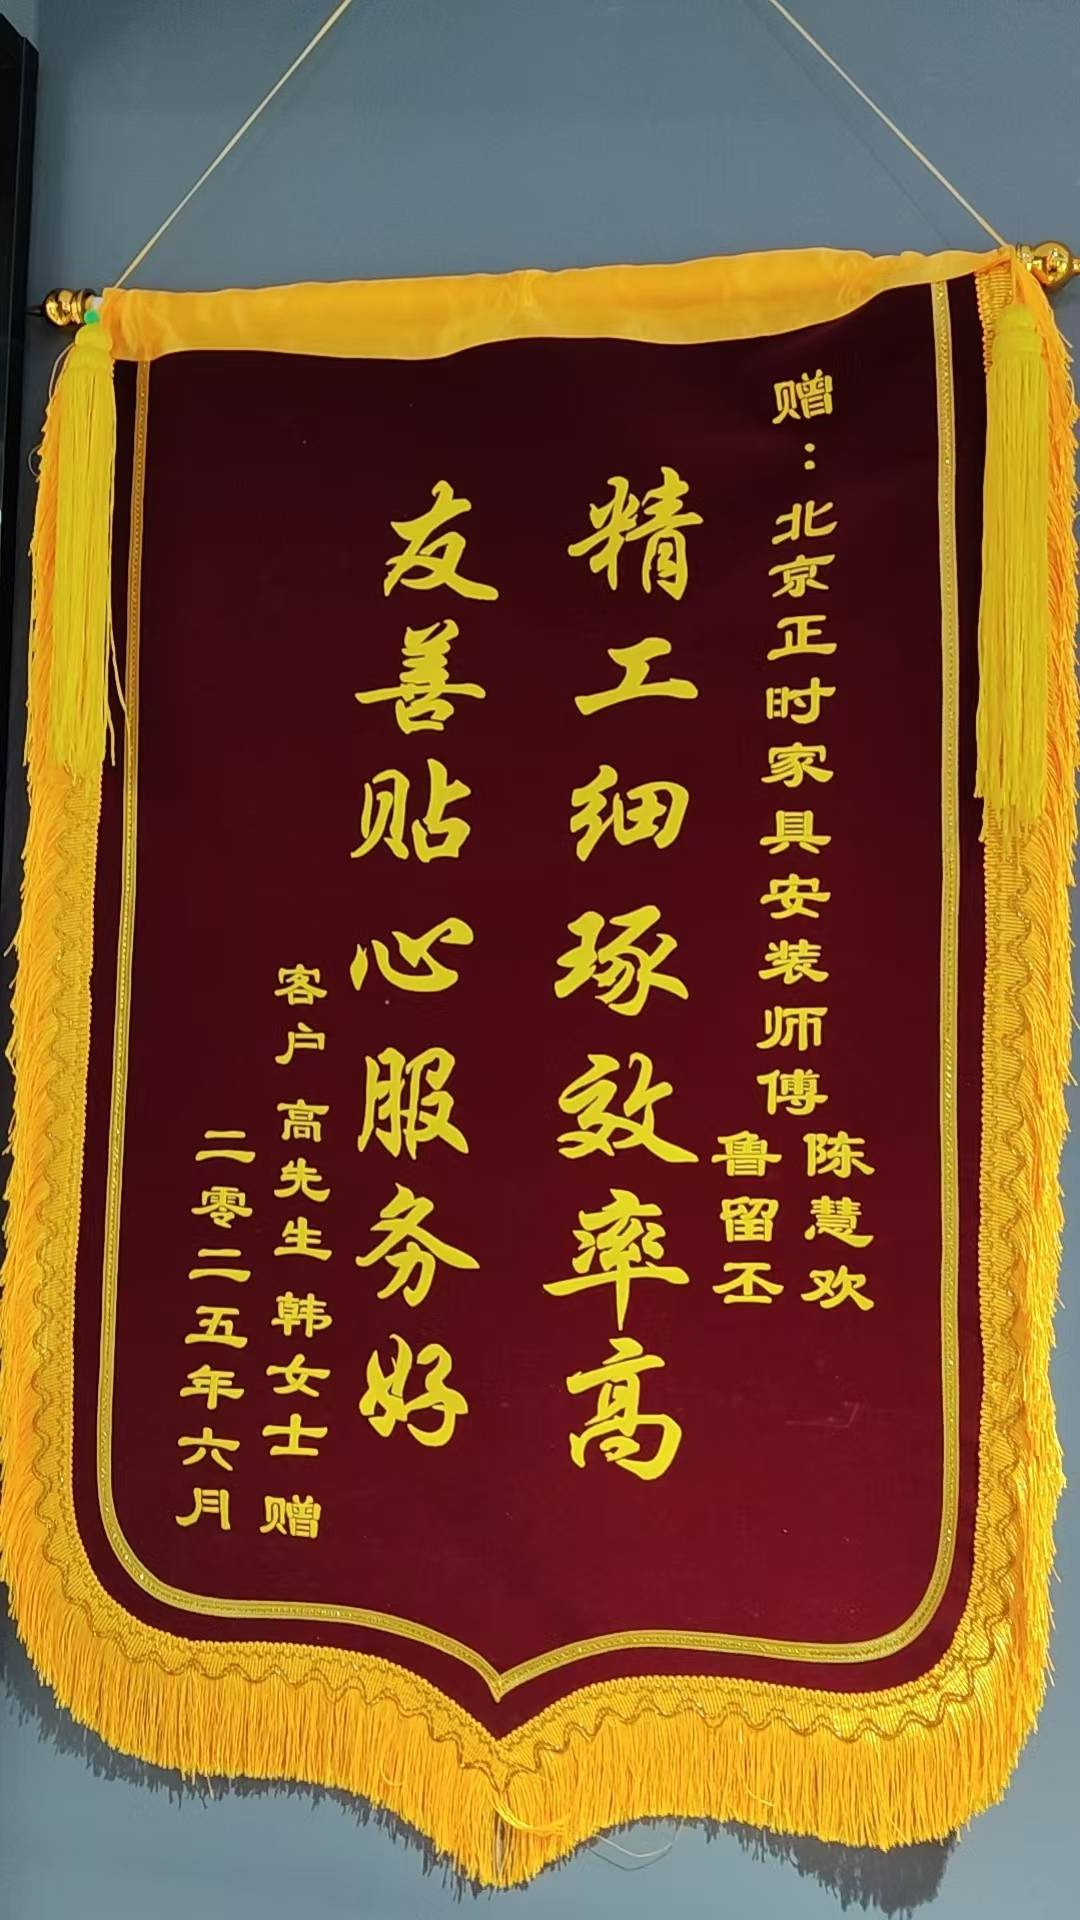 赠：北京正时家具安装师傅
陈慧欢
鲁留丕
精工细琢效率高
友善贴心服务好
客户 高先生 韩女士 赠
二零二五年六月